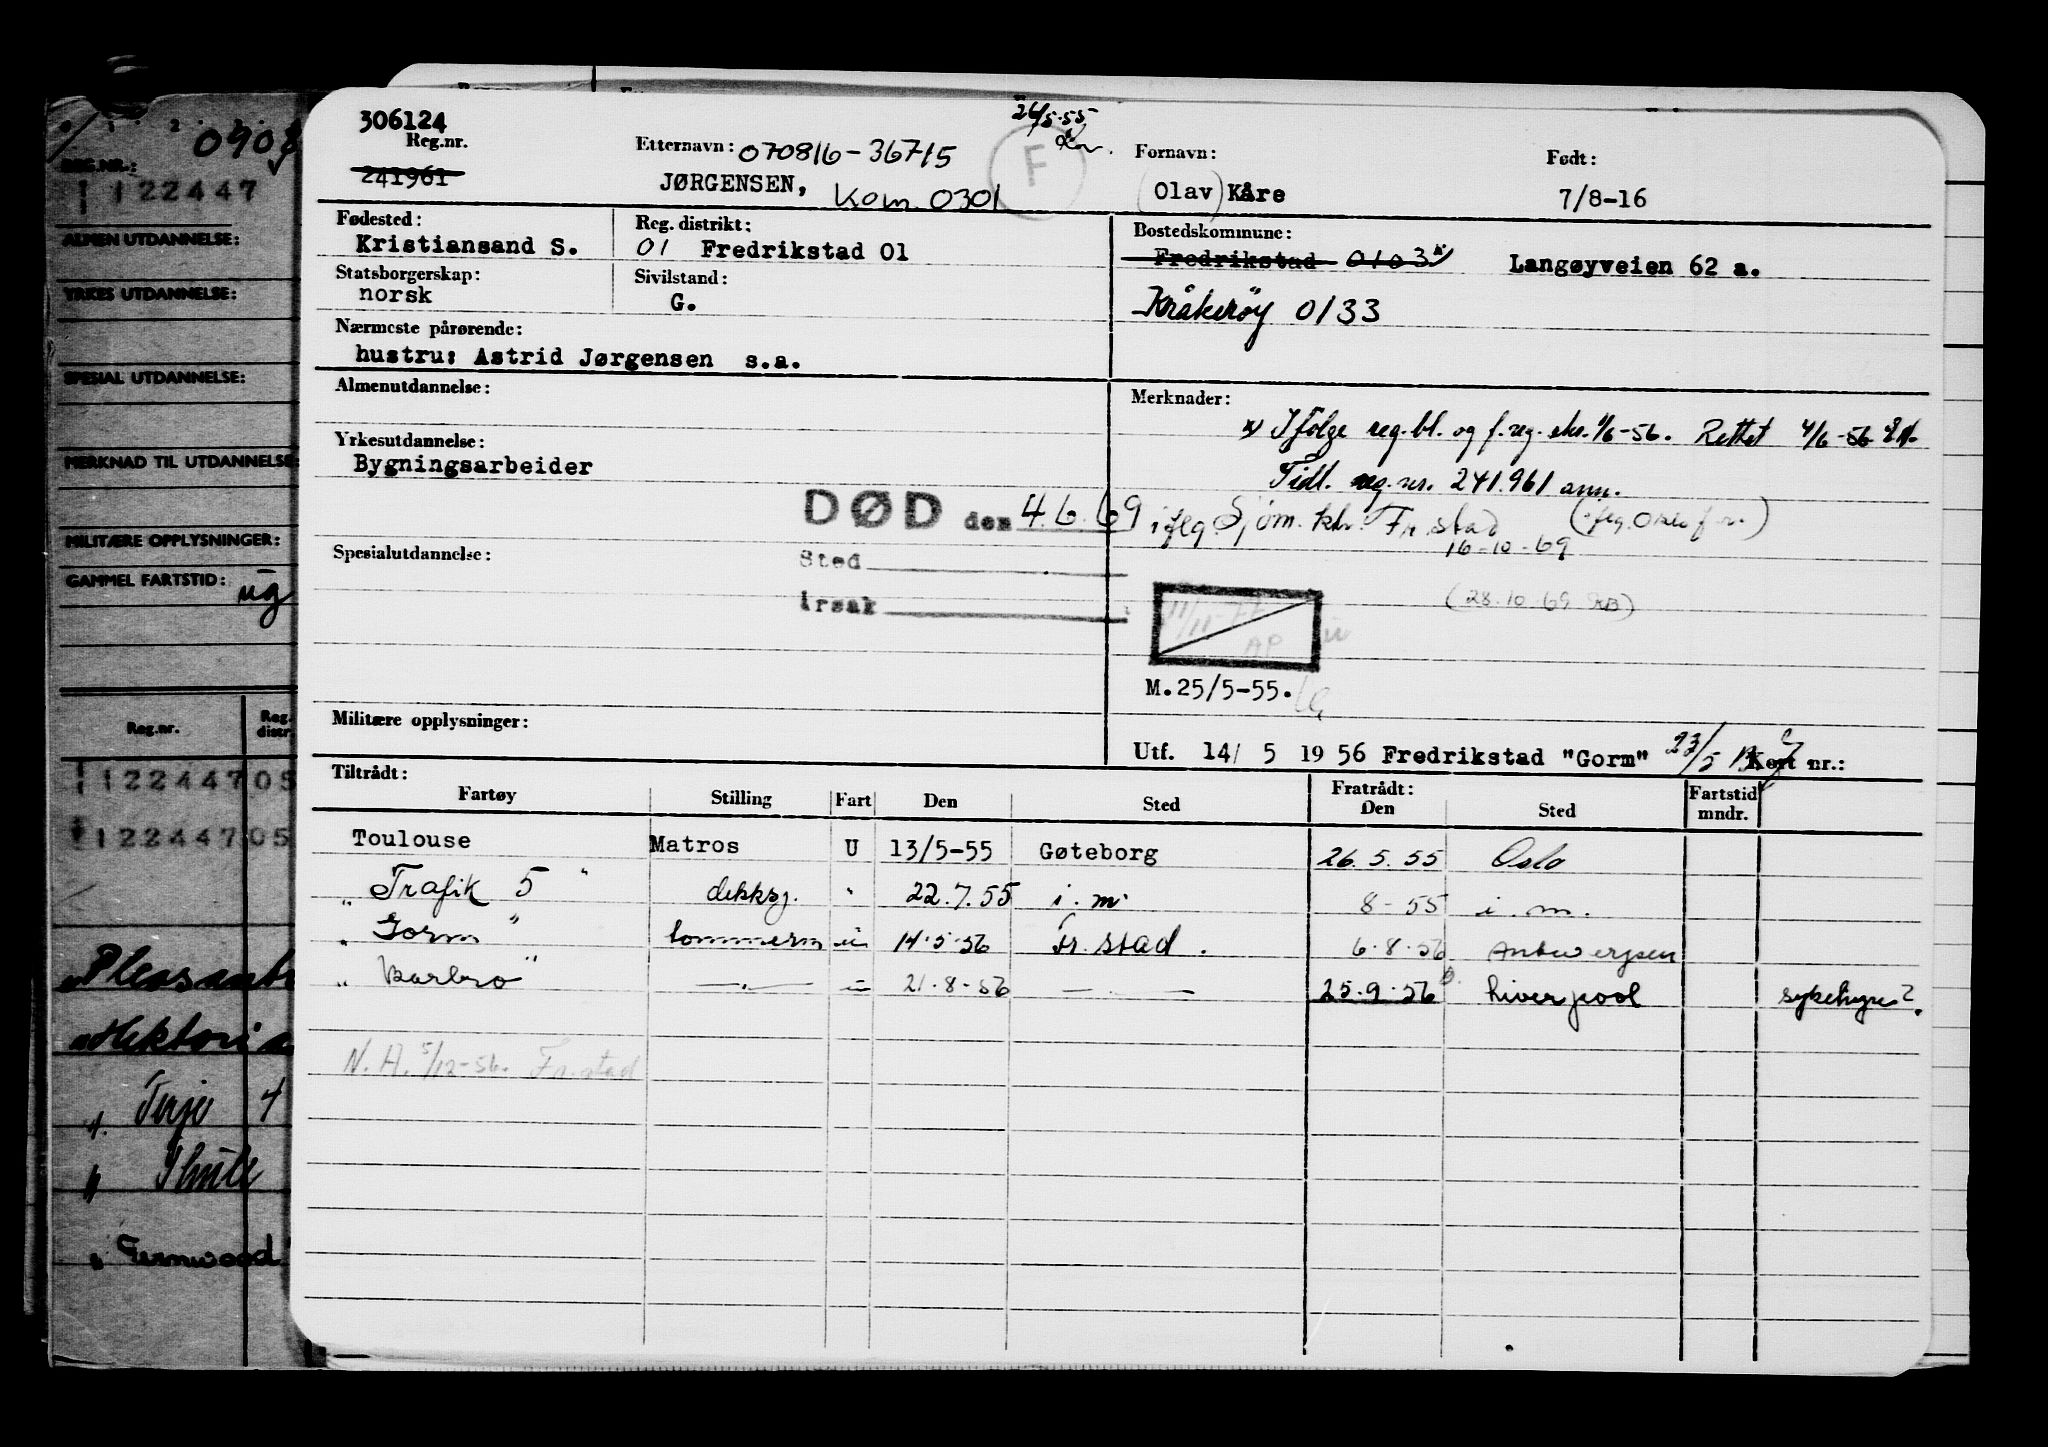 306124
Reg.nr.
241961
Etternavn: 070816-36715
JØRGENSEN, Kom. 0301
26/5-55
F
Fornavn:
(Olav) Kåre
Født:
7/8-16
Fødested:
Kristiansand S.
Reg. distrikt:
01 Fredrikstad 01
Bostedskommune:
Fredrikstad 0103 x) Langøyveien 62 a.
Kråkerøy 0133
Statsborgerskap:
norsk
Sivilstand:
G.
Nærmeste pårørende:
hustru: Astrid Jørgensen s.a.
Almenutdannelse:
Merknader:
x) Ifølge reg.bl. og f.reg. skr. 1/6-56. Rettet 4/6-56
Tidl. reg.nr. 241.961 ann.
Yrkesutdannelse:
Bygningsarbeider
DØD den 4.6.69 iflg. Sjøm.ktr. Fr.stad
16-10-69
(28.10.69 RB)
Sted
Årsak
Spesialutdannelse:
AP
M.25/5-55.
Militære opplysninger:
Utf. 14/ 5 1956 Fredrikstad "Gorm" 23/5 Kort nr.:
Tiltrådt:
Fratrådt:
Fartøy Stilling Fart Den Sted Den Sted Fartstid mndr.
Toulouse Matros U 13/5-55 Gøteborg 26.5.55 Oslo
" Trafik 5 " dekksg. " 22.7.55 i.m. 8-55 i.m.
" Gorm " tømmerm 14.5.56 Fr.stad. 6.8.56 Antwerpen
" Barbro " —.— 21.8.56 —.— 25.9.56 Liverpool
N.A. 5/12-56. Fr.stad
0903
REG.NR.:
122447
ALMEN UTDANNELSE:
YRKES UTDANNELSE:
SPESIAL UTDANNELSE:
MERKNAD TIL UTDANNELSE:
MILITÆRE OPPLYSNINGER:
GAMMEL FARTSTID: ug
Reg.nr. Reg. distr.
122447 05
122447 05
Terje 4
Thule
Fernwood